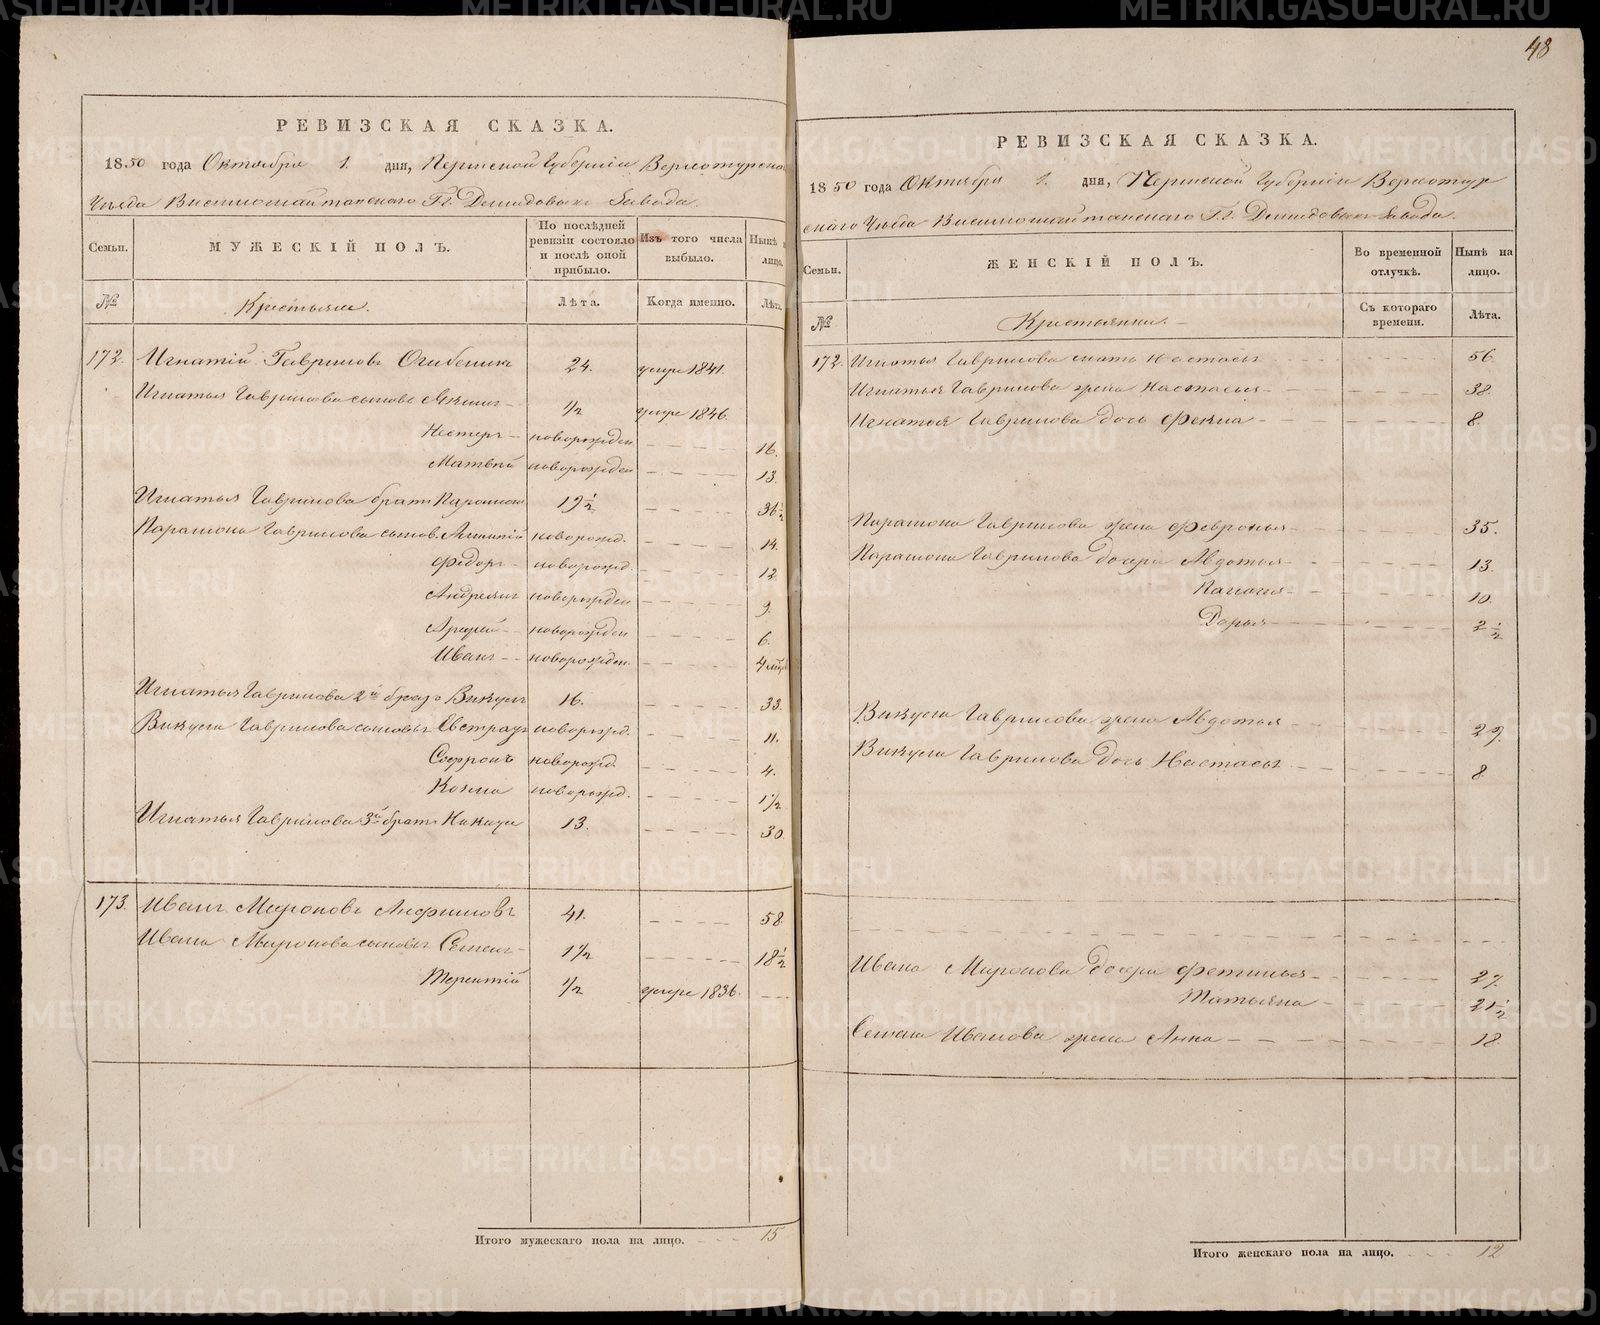 48
РЕВИЗСКАЯ СКАЗКА.
1850 года Октября 1. дня, Пермской Губернии Верхотурска
Уѣзда Висимошайтанскаго Гг. Демидовыхъ Завода.
Семьи. МУЖЕСКІЙ ПОЛЪ. По послѣдней ревизіи состояло и послѣ оной прибыло. Изъ того числа выбыло. Нынѣ лицо.
№ Крестьяне. Лѣта. Когда именно. Лѣта.
172. Игнатій Гавриловъ Огибенинъ 24. умре 1841.
Игнатья Гаврилова сыновья 1/2 умре 1846.
Нестеръ новорожден 16.
Матвей новорожден 13.
Игнатья Гаврилова братъ Парамонъ 19 1/2 36 1/2
Парамона Гаврилова сынов. новорожд. 14.
Федоръ новорожд. 12.
Андреянъ новорожден 9.
новорожден 6.
Иванъ новорожден. 4
Игнатья Гаврилова 2й братъ Викулъ 16. 33.
Викулы Гаврилова сыновья Евстратъ новорожд. 11.
Софронъ новорожд. 4.
Козма новорожд. 1 1/2
Игнатья Гаврилова 3й братъ Никита 13. 30.
173. Иванъ Мироновъ Анфимовъ 41. 58.
Ивана Миронова сыновья Семенъ 1 1/2 18 1/2
Терентій 1/2 умре 1836.
Итого мужескаго пола на лицо. 15
РЕВИЗСКАЯ СКАЗКА.
1850 года Октября 1. дня, Пермской Губерніи Верхотур
скаго Уѣзда Висимошайтанскаго Гг. Демидовыхъ Завода.
Семьи. ЖЕНСКІЙ ПОЛЪ. Во временной отлучкѣ. Нынѣ на лицо.
№ Крестьянки. Съ котораго времени. Лѣта.
172. Игнатья Гаврилова мать Настасья 56.
Игнатья Гаврилова жена Настасья 38.
Игнатья Гаврилова дочь Фекла 8.
Парамона Гаврилова жена Февронья 35.
Парамона Гаврилова дочери Авдотья 13.
10.
Дарья 2 1/2
Викулы Гаврилова жена Авдотья 29.
Викулы Гаврилова дочь Настасья 8
Ивана Миронова дочери Фетинья 27.
Татьяна 21 1/2
Семена Иванова жена Анна 18.
Итого женскаго пола на лицо. 12
METRIKI.GASO-URAL.RU